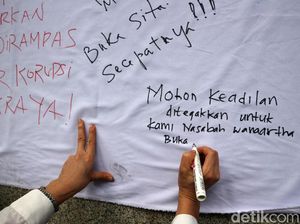 RKAN
DIRAMPAS
R KORUPSI
RAYA!
Buka Sita
Secepatnya!!!
Mohon Keadilan
ditegakkan untuk
kami Nasabah wanaartha
Buka
detikcom